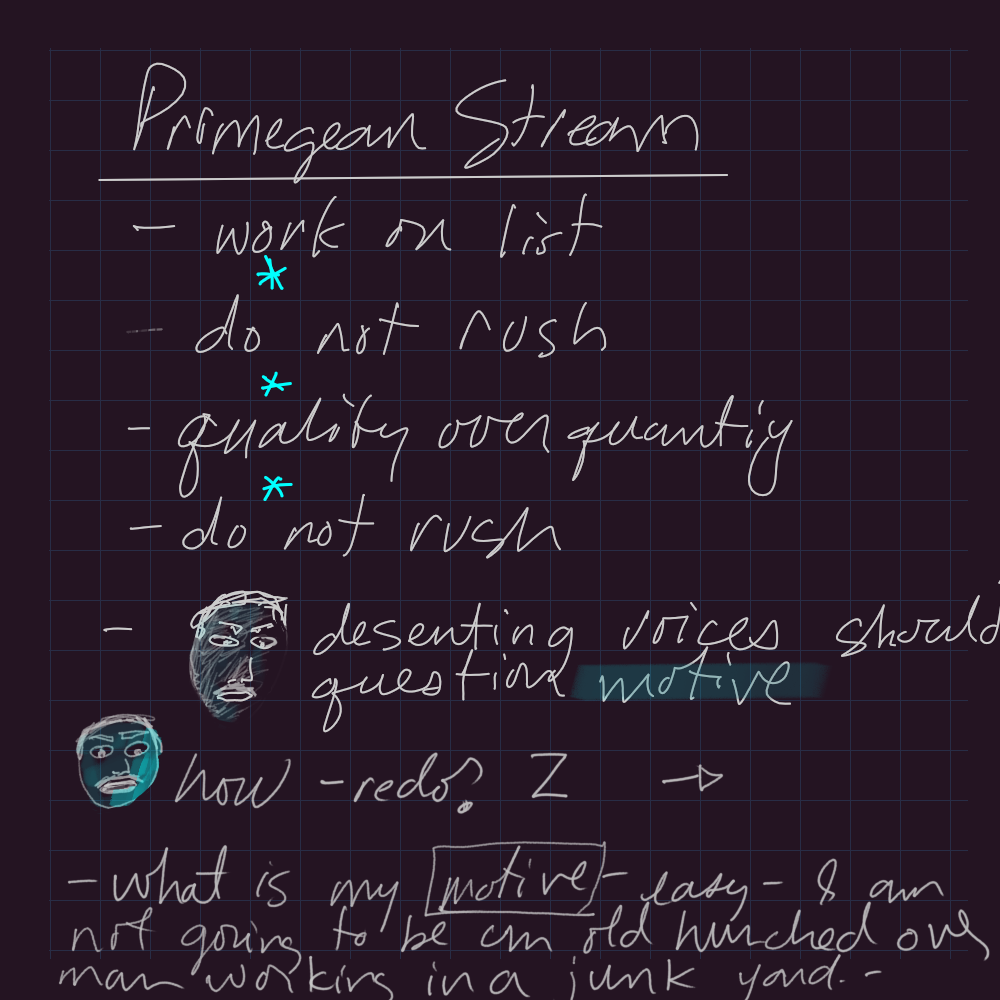 Primegean Stream
- work on list
*
- do not rush
*
- quality over quantiy
*
- do not rush
- desenting voices should
question motive
how - redo? Z →
- what is my motive - easy - I am
not going to be an old hunched over
man working in a junk yard. -